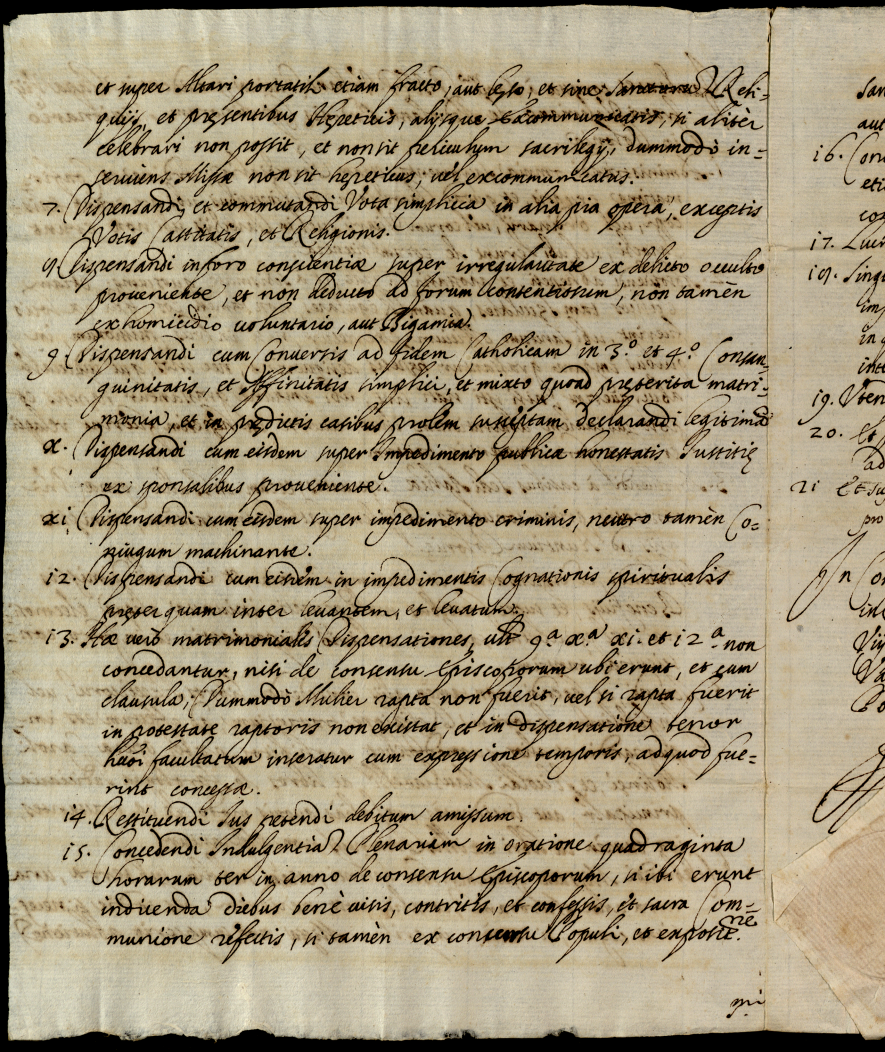 et super Altari portatili etiam fracto, aut leso, et sine Reli=
quijs, et presentibus Hereticis, alijsque excommunicatis, si alitèr
celebrari non possit, et non sit periculum sacrilegij, dummodò in=
seruiens Missæ non sit hereticus, uel excommunicatus.
7. Dispensandi, et commutandi Vota simplicia in alia pia opera, exceptis
Votis Castitatis, et Religionis.
8 Dispensandi in foro conscientiæ super irregularitate ex delicto occulto
proueniente, et non deducto ad forum contentiosum, non tamèn
ex homicidio voluntario, aut Bigamia.
9 Dispensandi cum Conuersis ad fidem Catholicam in 3.º et 4.º Consan=
guinitatis, et Affinitatis simplici, et mixto quoad preterita matri=
monia, et in predictis casibus prolem susceptam declarandi legitimã
x. Dispensandi cum eisdem super Impedimento publicæ honestatis Iustitię
ex sponsalibus proueniente.
xi Dispensandi cum eisdem super impedimento criminis, neutro tamèn Co=
niugum machinante.
12. Dispensandi cum eisdem in impedimentis Cognationis spiritualis
preterquam inter leuantem, et leuatum.
13. Hæ uerò matrimonialis Dispensationes, 9ª xª xi. et 12ª non
concedantur, nisi de consensu Episcoporum ubi erunt, et cum
clausula; Dummodò Mulier rapta non fuerit, uel si rapta fuerit
in potestate raptoris non existat, et in dispensatione tenor
hm̃oi facultatum inseratur cum expressione temporis, ad quod fue=
rint concessæ.
14. Restituendi Ius petendi debitum amissum.
15. Concedendi Indulgentiã Plenariam in oratione quadraginta
horarum ter in anno de consensu Episcoporum, si ibi erunt
indicenda diebus benè uisis, contritis, et confessis, et sacra Com=
munione refectis, si tamèn ex concursu Populi, et expositne.
San
aut
16. Con
eti
co
17.
18. Sing
im
in
int
19. Uten
20. Et
ad
21 Et su
pro
In Con
in